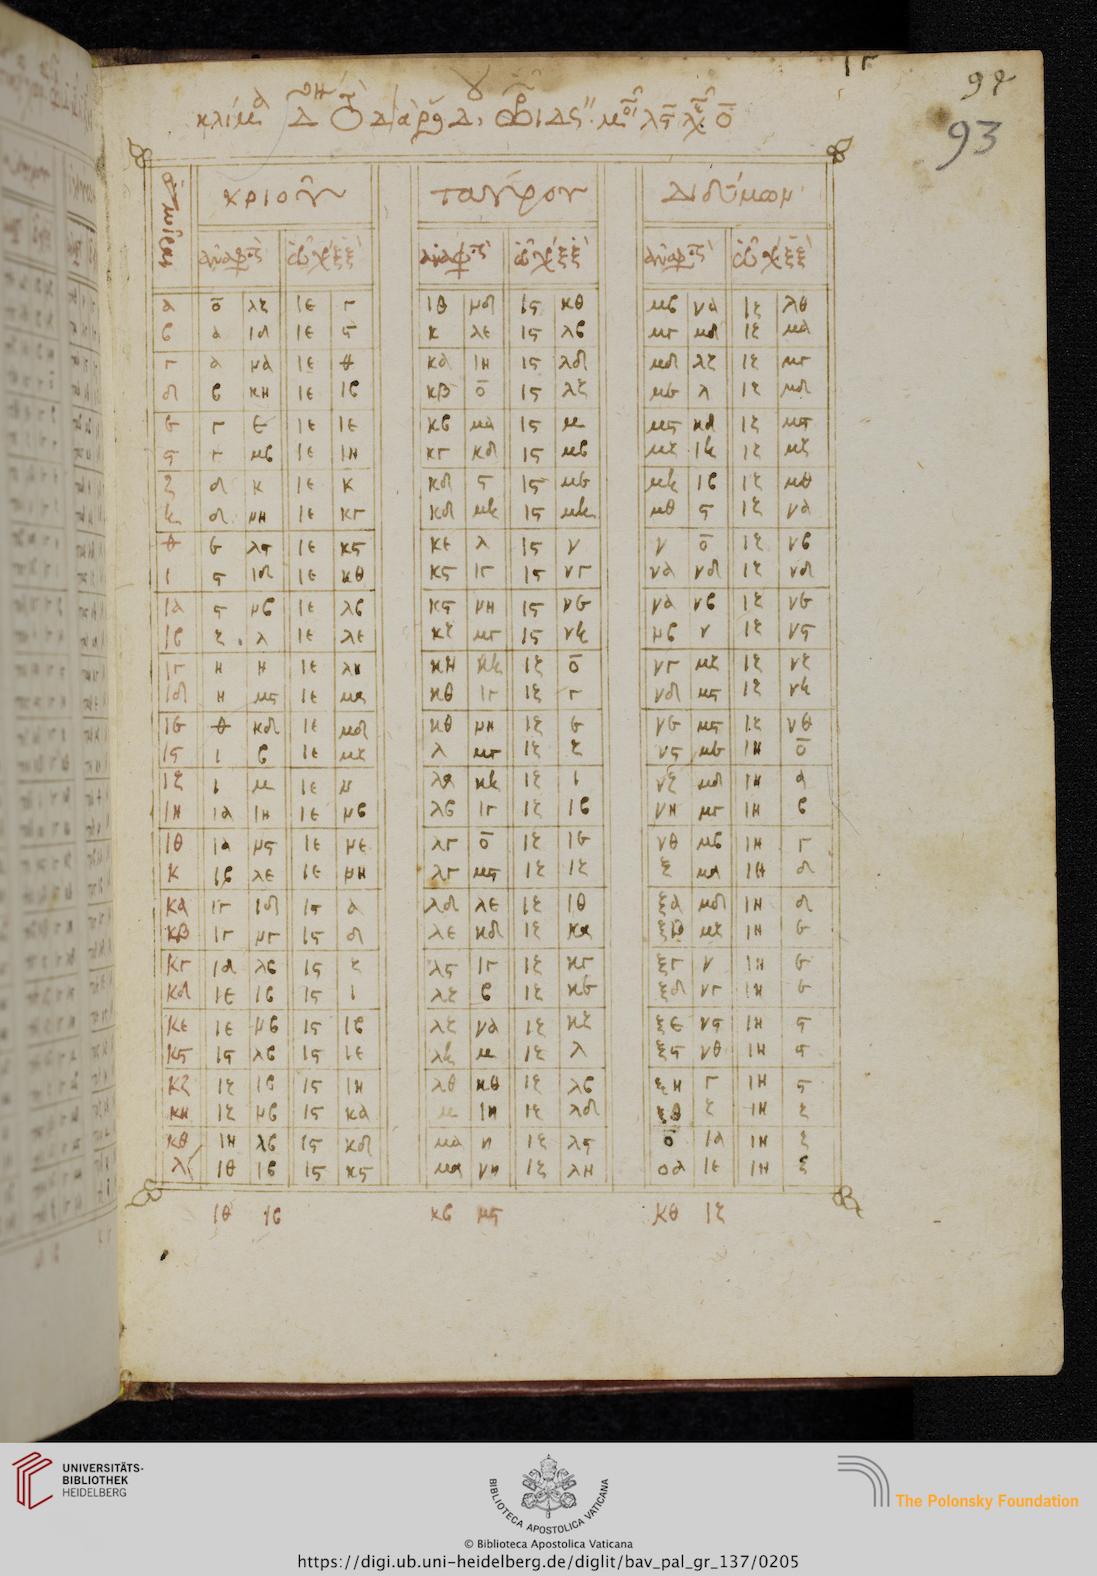 97
93
κριοῦ ταύρου διδύμων
α ο λζ ιε γ ιθ νδ ις κθ μβ να ιζ λθ
β α ιδ ιε ς κ λε ις λβ μγ μδ ιζ μα
γ α να ιε θ κα ιη ις λδ μδ λζ ιζ μγ
δ β κη ιε ιβ κβ ο ις λζ με λ ιζ μδ
ε γ ε ιε ιε κβ μα ις μ μς κδ ιζ μς
ς γ μβ ιε ιη κγ κδ ις μβ μζ ιη ιζ μζ
ζ δ κ ιε κ κδ ς ις με μη ιβ ιζ μθ
η δ νη ιε κγ κδ μη ις μη μθ ς ιζ να
θ ε λς ιε κς κε λ ις ν ν ο ιζ νβ
ι ς ιδ ιε κθ κς ιγ ις νγ να νδ ιζ νδ
ια ς νβ ιε λβ κς νη ις νε να νβ ιζ νε
ιβ ζ λ ιε λε κζ μγ ις νη νβ ν ιζ νς
ιγ η η ιε λη κη κη ιζ ο νγ μζ ιζ νζ
ιδ η μς ιε μα κθ ιγ ιζ γ νδ μς ιζ νη
ιε θ κδ ιε μδ κθ νη ιζ ε νε μς ιζ νθ
ις ι β ιε μζ λ μγ ιζ ζ νς με ιη ο
ιζ ι μ ιε ν λα κη ιζ ι νζ μδ ιη α
ιη ια ιη ιε νβ λβ ιγ ιζ ιβ νη μγ ιη β
ιθ ια νς ιε νε λγ ο ιζ ιε νθ μβ ιη γ
κ ιβ λε ιε νη λγ μς ιζ ιζ ξ μα ιη δ
κα ιγ ιδ ις α λδ λε ιζ ιθ ξα μδ ιη δ
κβ ιγ νγ ις δ λε κδ ιζ κα ξβ μζ ιη ε
κγ ιδ λβ ις ζ λς ιγ ιζ κγ ξγ ν ιη ε
κδ ιε ιβ ις ι λζ β ιζ κε ξδ νγ ιη ε
κε ιε νβ ις ιβ λζ να ιζ κζ ξε νς ιη ς
κς ις λβ ις ιε λη μ ιζ λ ξς νθ ιη ς
κζ ιζ ιβ ις ιη λθ κθ ιζ λβ ξη γ ιη ς
κη ιζ νβ ις κα μ ιη ιζ λδ ξθ ζ ιη ζ
κθ ιη λβ ις κδ μα η ιζ λς ο ια ιη ζ
λ ιθ ιβ ις κς μα νη ιζ λη οα ιε ιη ζ
ιθ ιβ κβ μς κθ ιζ
UNIVERSITÄTS-
BIBLIOTHEK
HEIDELBERG
BIBLIOTECA APOSTOLICA VATICANA
The Polonsky Foundation
© Biblioteca Apostolica Vaticana
https://digi.ub.uni-heidelberg.de/diglit/bav_pal_gr_137/0205